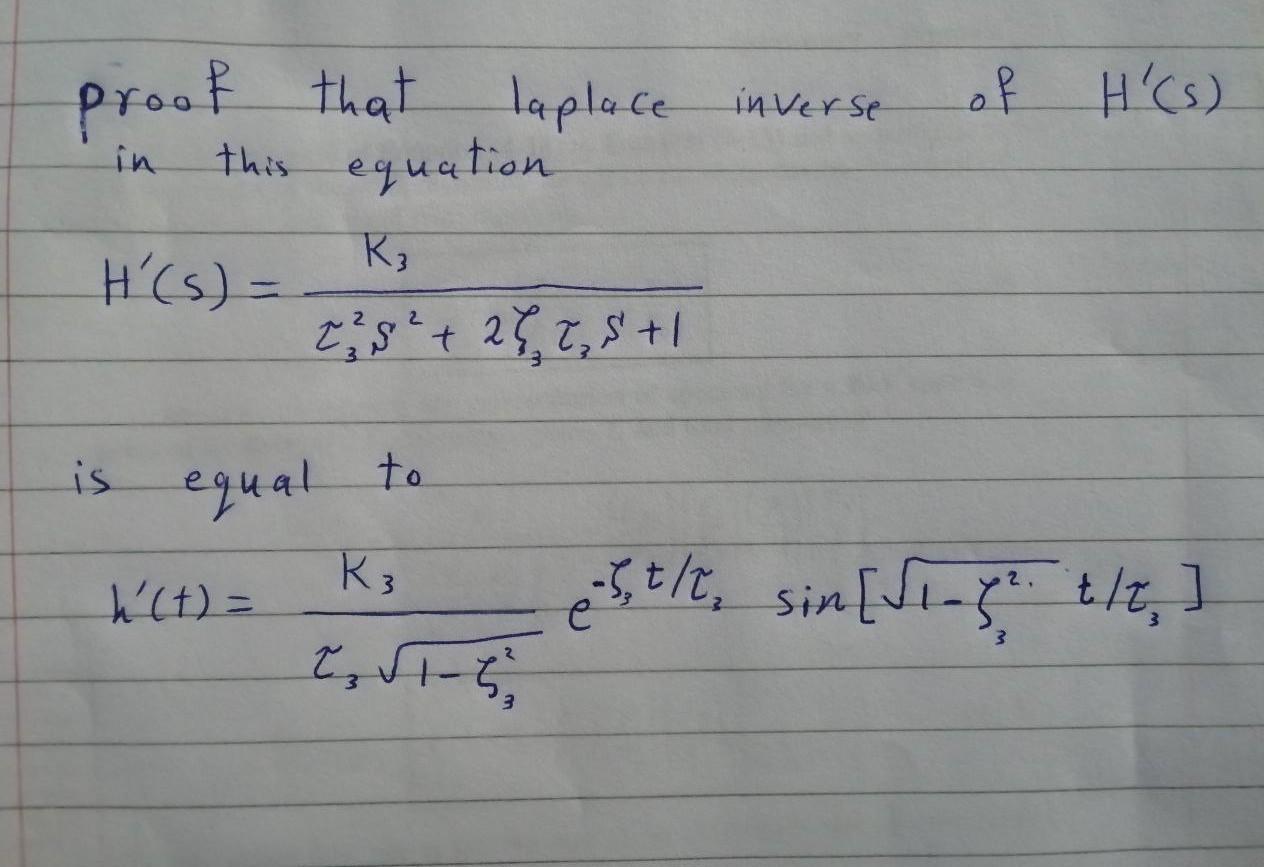 proof that laplace inverse of H'(s)
in this equation
H'(s) = K₃ / (τ₃²s² + 2ζ₃τ₃s + 1)
is equal to
h'(t) = K₃ / (τ₃√(1-ζ₃²)) e^(-ζ₃t/τ₃) sin[√(1-ζ₃²) t/τ₃]